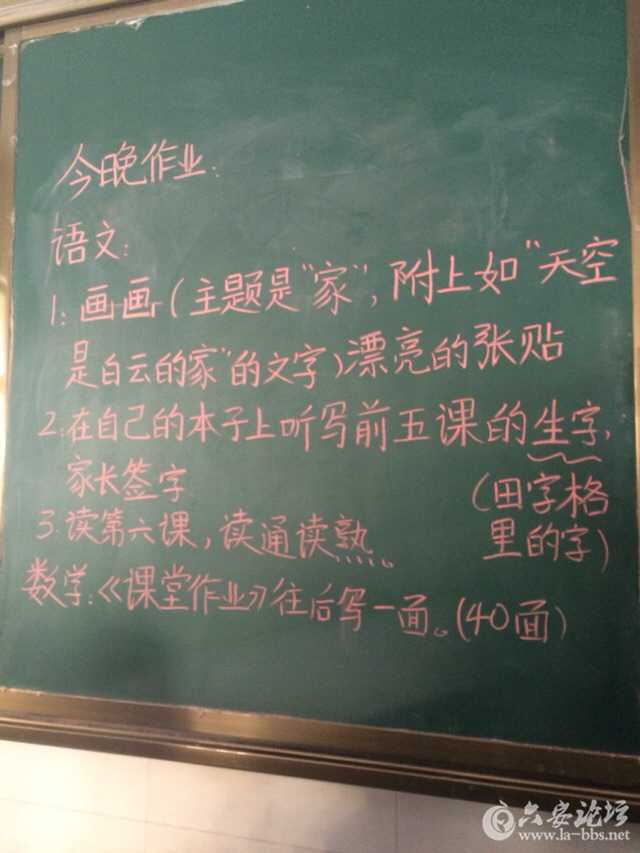 今晚作业:
语文:
1: 画画(主题是"家",附上如"天空
是白云的家"的文字)漂亮的张贴
2:在自己的本子上听写前五课的生字,
家长签字 (田字格
里的字)
3:读第六课,读通读熟。
数学:《课堂作业》往后写一面。(40面)
六安论坛
www.la-bbs.net